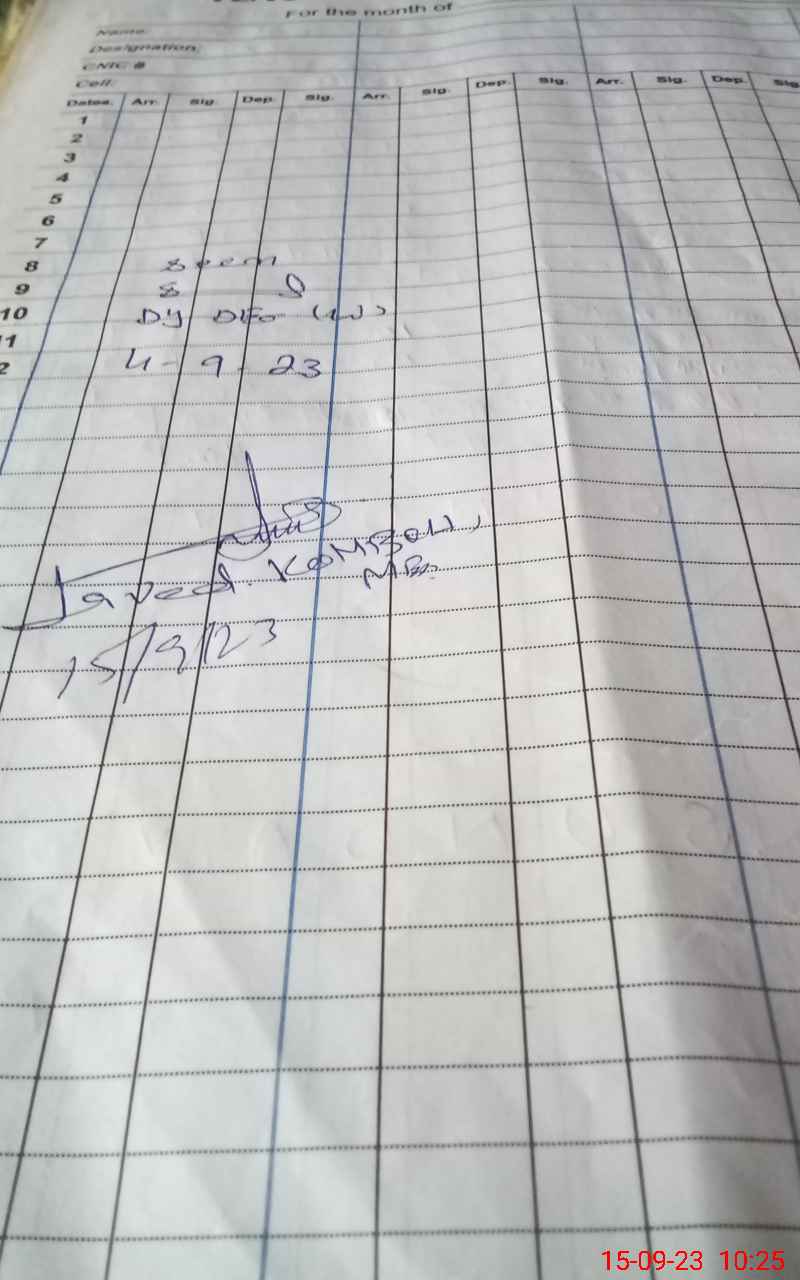 For the month of
Name:
Designation:
CNIC #
Cell:
Dates. Arr. Sig. Dep. Sig. Arr. Sig. Dep. Sig. Arr. Sig. Dep. Sig.
1
2
3
4
5
6
7
8 Seen
9
10 Dy DEO (W)
11
2
4-9-23
Javed KAMBOH,
15/9/23
15-09-23 10:25